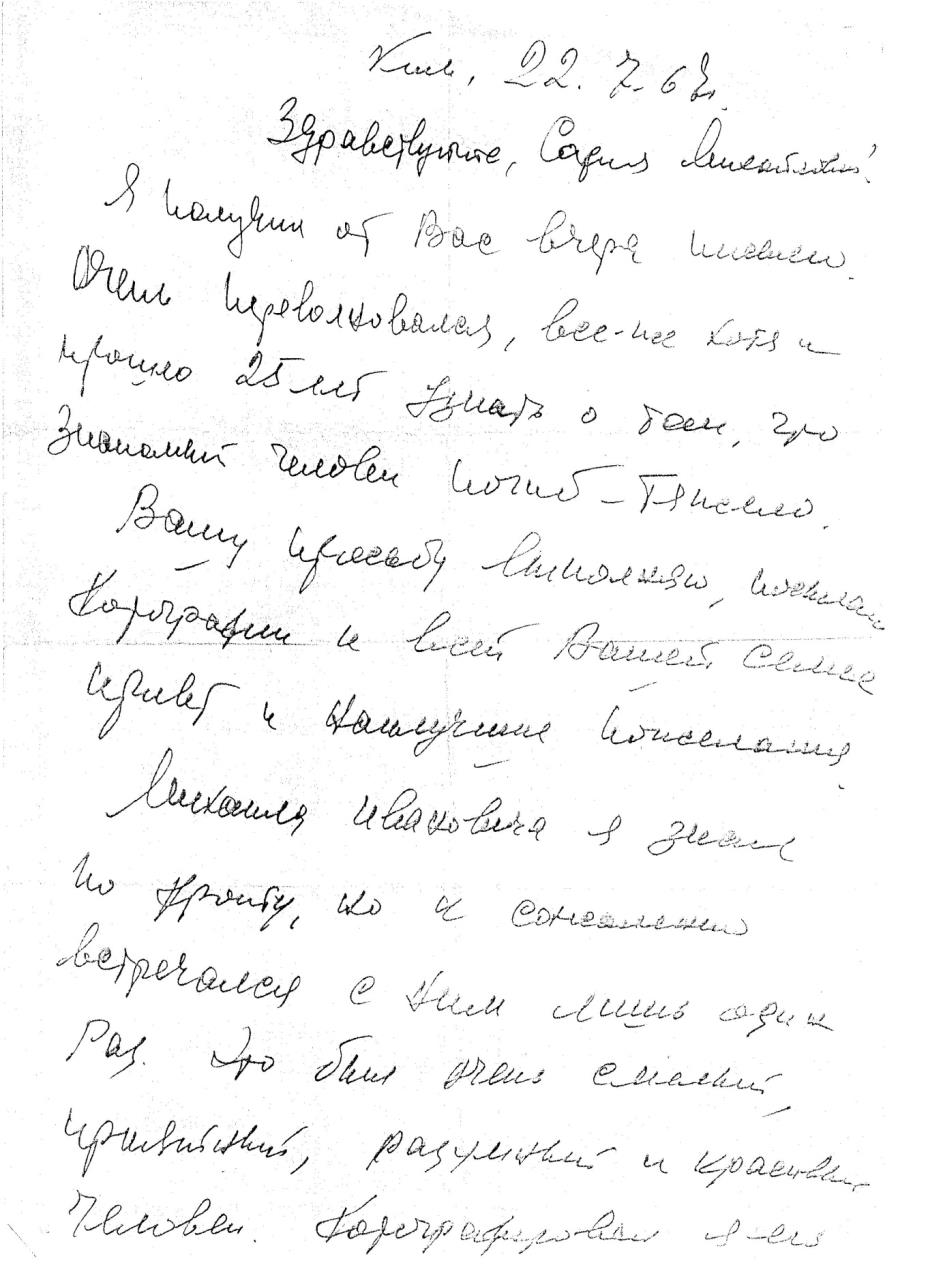 Киев, 22. 7. 67г.
Здравствуйте, София Михайловна!
Я получил от Вас вчера письмо.
Очень переволновался, все-же хотя и
прошло 25 лет узнать о том, что
знакомый человек погиб – тяжело.
Вашу просьбу выполняю, посылаю
фотографии и всей Вашей семье
привет и наилучшие пожелания
Михаила Ивановича я знал
по фронту, но к сожалению
встречался с ним лишь один
раз. Это был очень смелый,
приятный, разумный и красивый
человек. Фотографировал я его